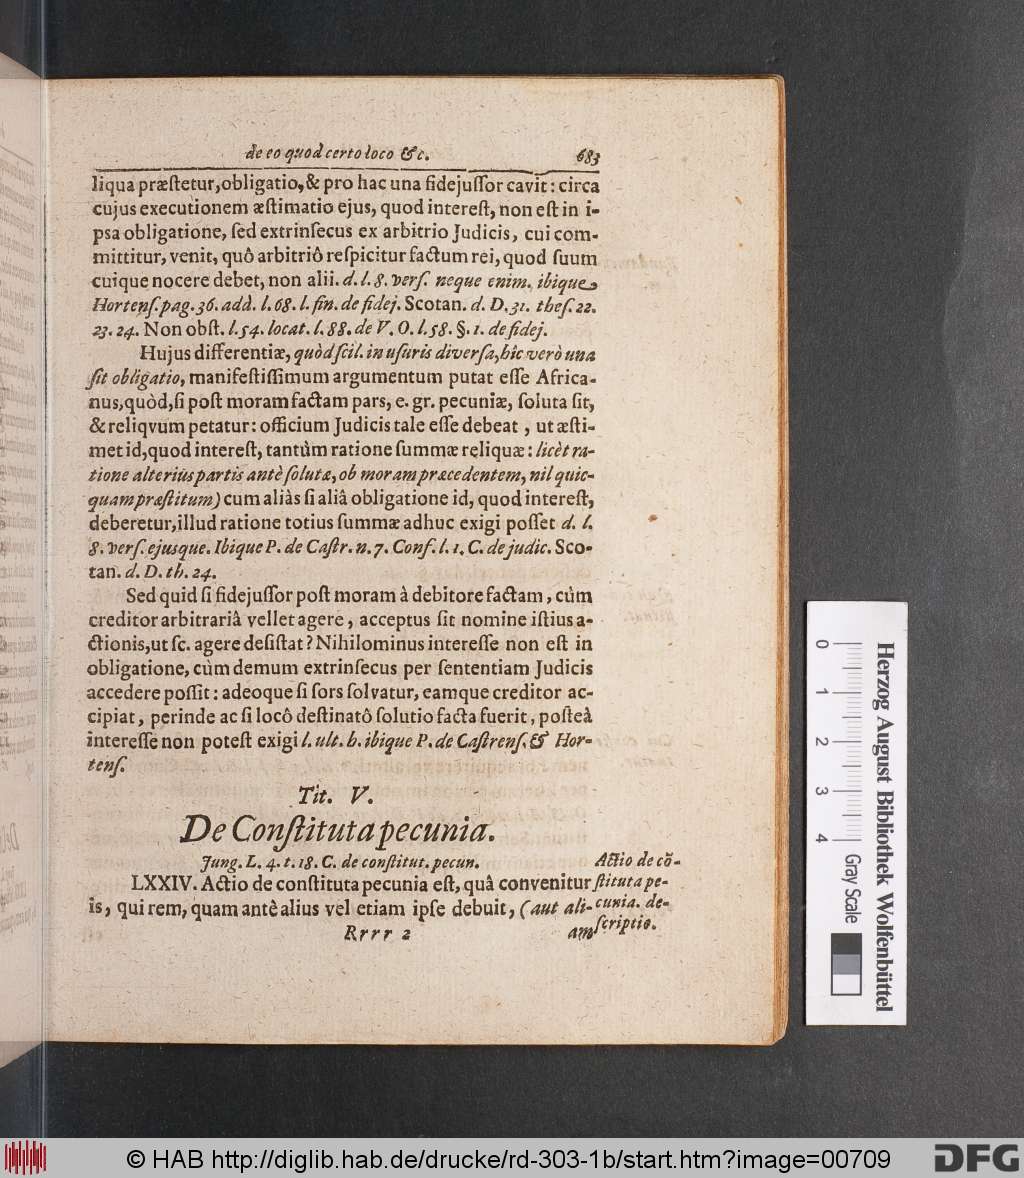 de eo quod certo loco &c. 683
liqua præſtetur, obligatio, & pro hac una fidejuſſor cavit: circa
cujus executionem æſtimatio ejus, quod intereſt, non eſt in i-
pſa obligatione, ſed extrinſecus ex arbitrio Judicis, cui com-
mittitur, venit, quô arbitriô reſpicitur factum rei, quod ſuum
cuique nocere debet, non alii. d. l. 8. verſ. neque enim. ibique
Hortenſ. pag. 36. add. l. 68. l. fin. de fidej. Scotan. d. D. 31. theſ. 22.
23. 24. Non obſt. l. 54. locat. l. 88. de V. O. l. 58. §. 1. de fidej.
Hujus differentiæ, quòd ſcil. in uſuris diverſa, hîc verò una
ſit obligatio, manifeſtiſſimum argumentum putat eſſe Africa-
nus, quòd, ſi poſt moram factam pars, e. gr. pecuniæ, ſoluta ſit,
& reliqvum petatur: officium Judicis tale eſſe debeat, ut æſti-
met id, quod intereſt, tantùm ratione ſummæ reliquæ: licèt ra-
tione alterius partis antè ſolutæ, ob moram præcedentem, nil quic-
quam præſtitum) cum aliàs ſi aliâ obligatione id, quod intereſt,
deberetur, illud ratione totius ſummæ adhuc exigi poſſet d. l.
8. verſ. ejusque. Ibique P. de Caſtr. n. 7. Conf. l. 1. C. de judic. Sco-
tan. d. D. th. 24.
Sed quid ſi fidejuſſor poſt moram à debitore factam, cùm
creditor arbitrariâ vellet agere, acceptus ſit nomine iſtius a-
ctionis, ut ſc. agere deſiſtat? Nihilominus intereſſe non eſt in
obligatione, cùm demum extrinſecus per ſententiam Judicis
accedere poſſit: adeoque ſi ſors ſolvatur, eamque creditor ac-
cipiat, perinde ac ſi locô deſtinatô ſolutio facta fuerit, poſteà
intereſſe non poteſt exigi l. ult. h. ibique P. de Caſtrenſ. & Hor-
tenſ.
Tit. V.
De Conſtituta pecunia.
Jung. L. 4. t. 18. C. de conſtitut. pecun.
LXXIV. Actio de conſtituta pecunia eſt, quâ convenitur
is, qui rem, quam antè alius vel etiam ipſe debuit, (aut ali-
Rrrr 2 am
Actio de cō-
ſtituta pe-
cunia. de-
ſcriptio.
0 1 2 3 4
Gray Scale
Herzog August Bibliothek Wolfenbüttel
© HAB http://diglib.hab.de/drucke/rd-303-1b/start.htm?image=00709
DFG